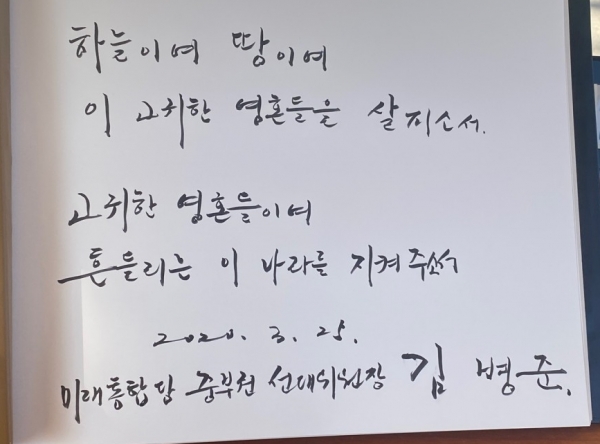 하늘이여 땅이여
이 고귀한 영혼들을 살피소서.
고귀한 영혼들이여
흔들리는 이 나라를 지켜주소서
2020. 3. 25.
미래통합당 중부권 선대위원장 김병준.